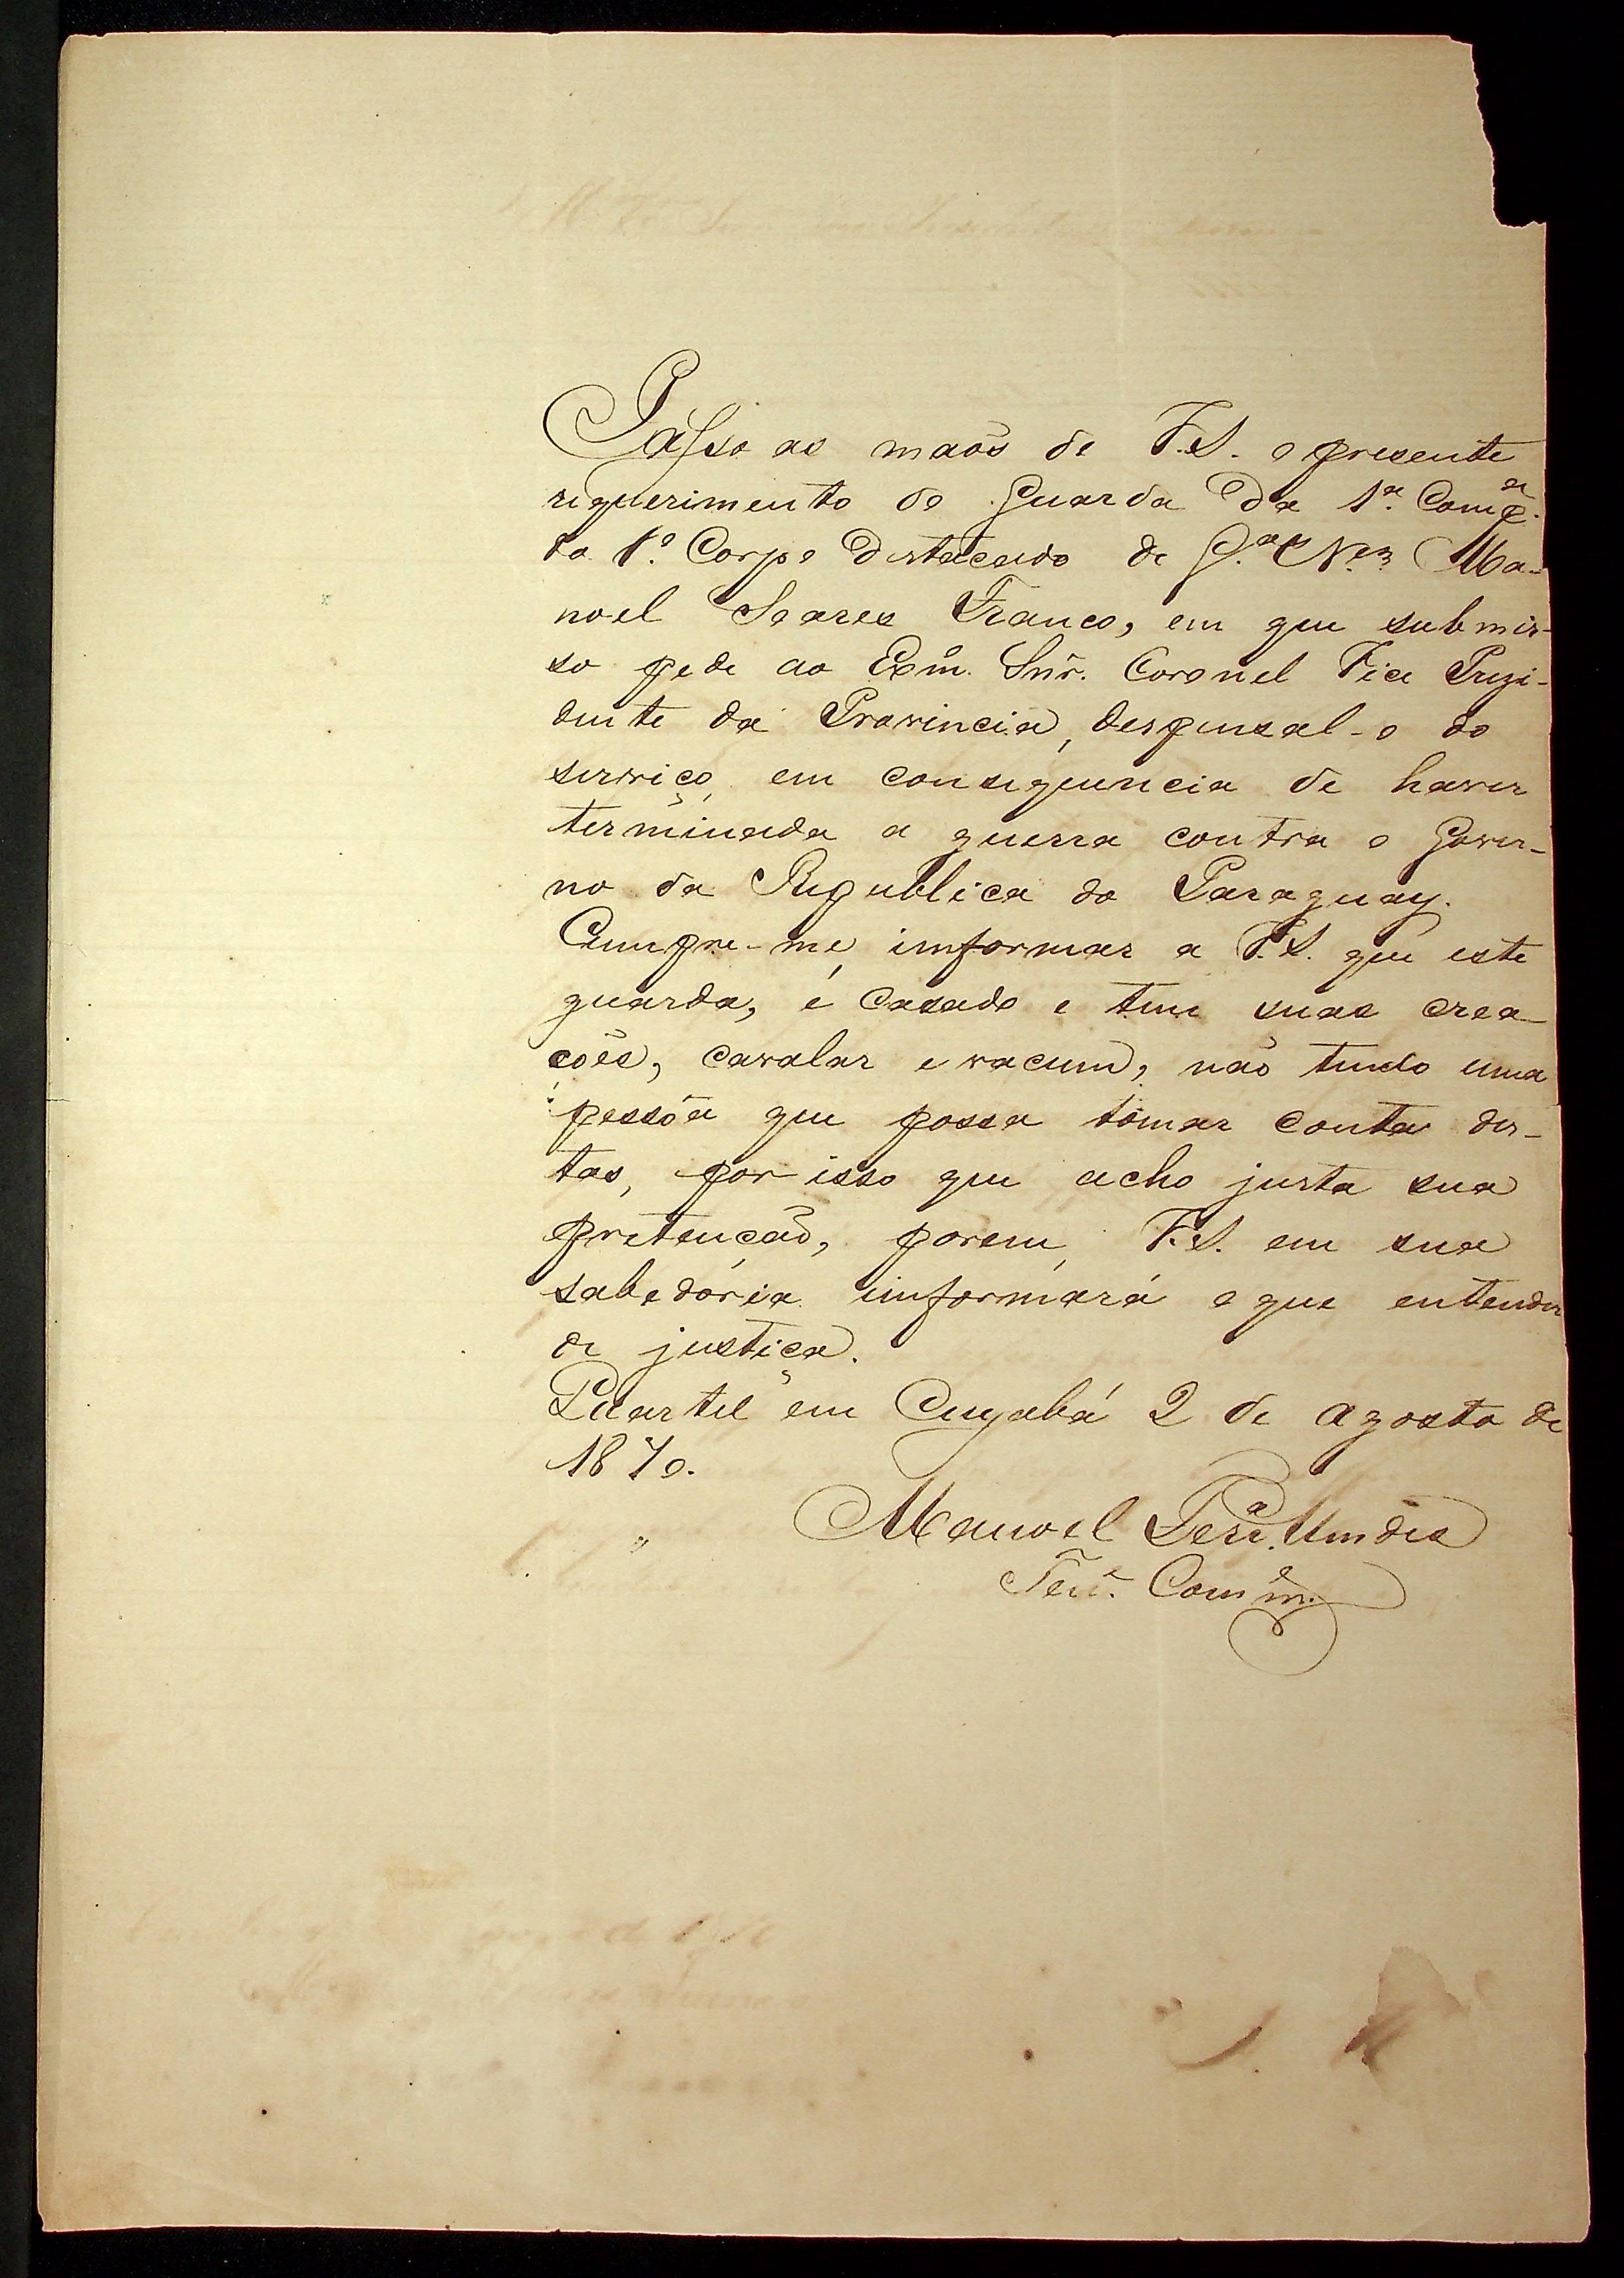 Passo as maõs de V.S. o presente
requerimento do Guarda da 1ª Comp.ª
do 1º Corpo Destacado de G.ªs N.es Ma-
noel Soares Franco, em que submis-
so pede ao Exm.º Snr. Coronel Vice Prezi-
dente da Provincia, despensal-o do
serviço, em consequencia de haver
terminada a guerra contra o Gover-
no da Republica do Paraguay.
Cumpre-me, imformar a V.S. que este
guarda, é casado e tem suas crea-
ções, cavalar e vacum, não tendo uma
pessôa que possa tomar conta des-
tas, por isso que acho justa sua
pretenção, porem, V.S. em sua
sabedoria imformará o que entender
de justiça.
Quartel em Cuyabá 2 de Agosto de
1870.
Manoel Per.ª Mendes
Ten.e Com.e